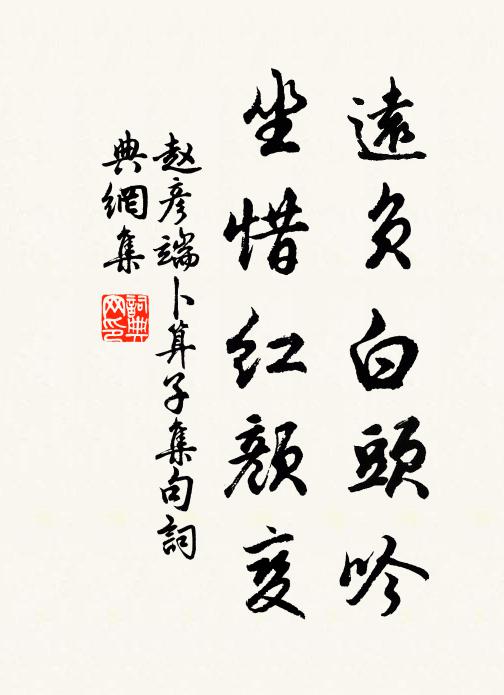 遠負白頭吟
坐惜紅顏变
赵彥端卜算子集句詞
典網集
詞典网印